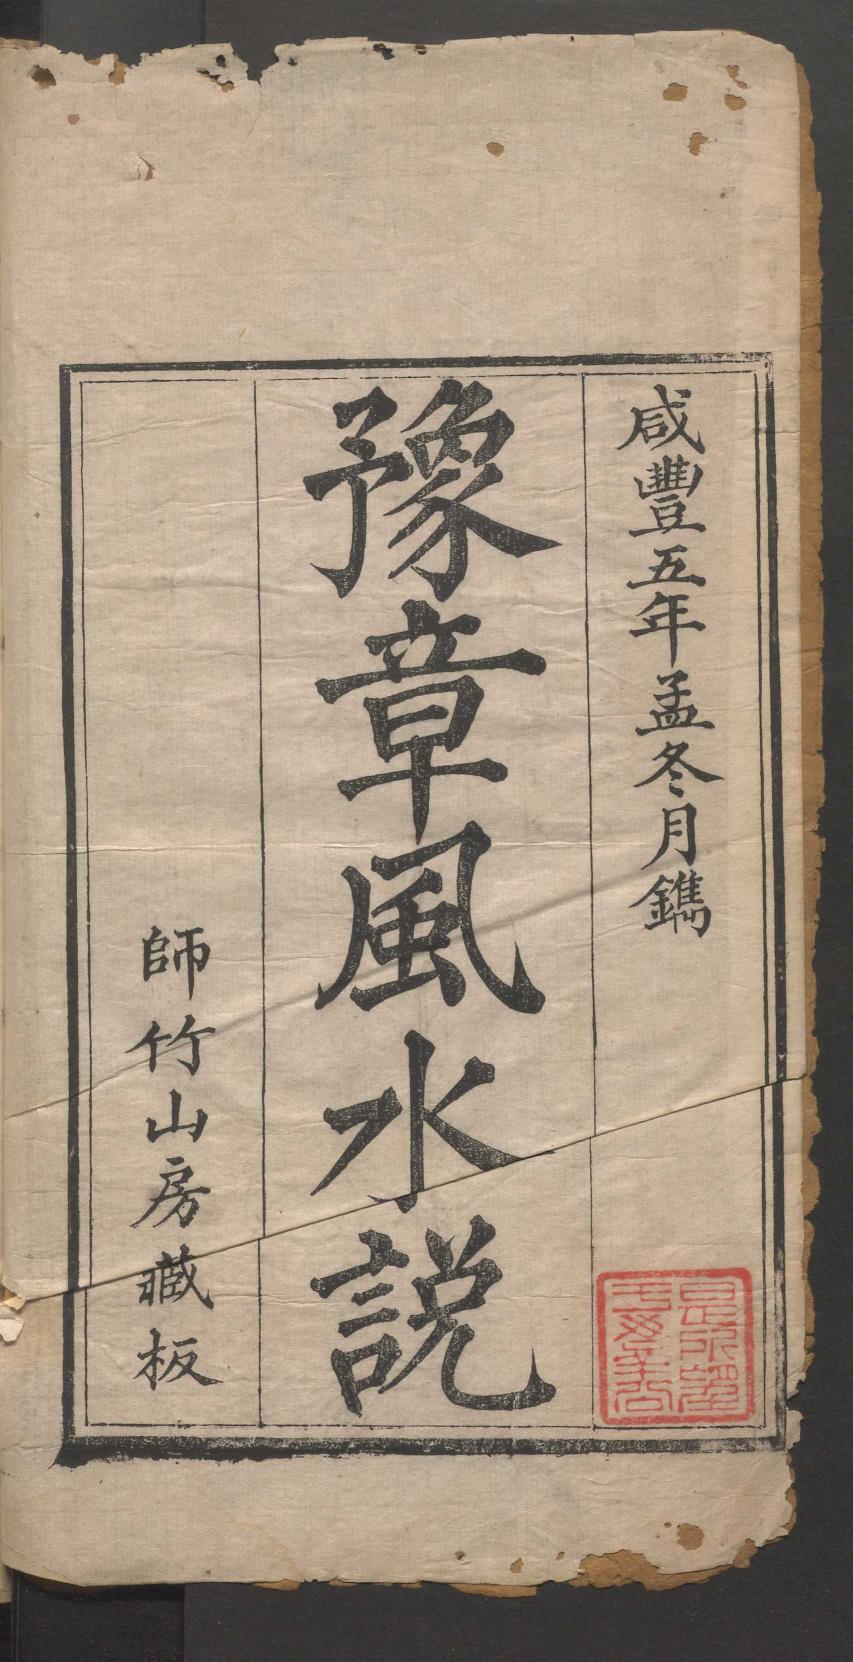 咸豐五年孟冬月鐫
豫章風水説
師竹山房藏板